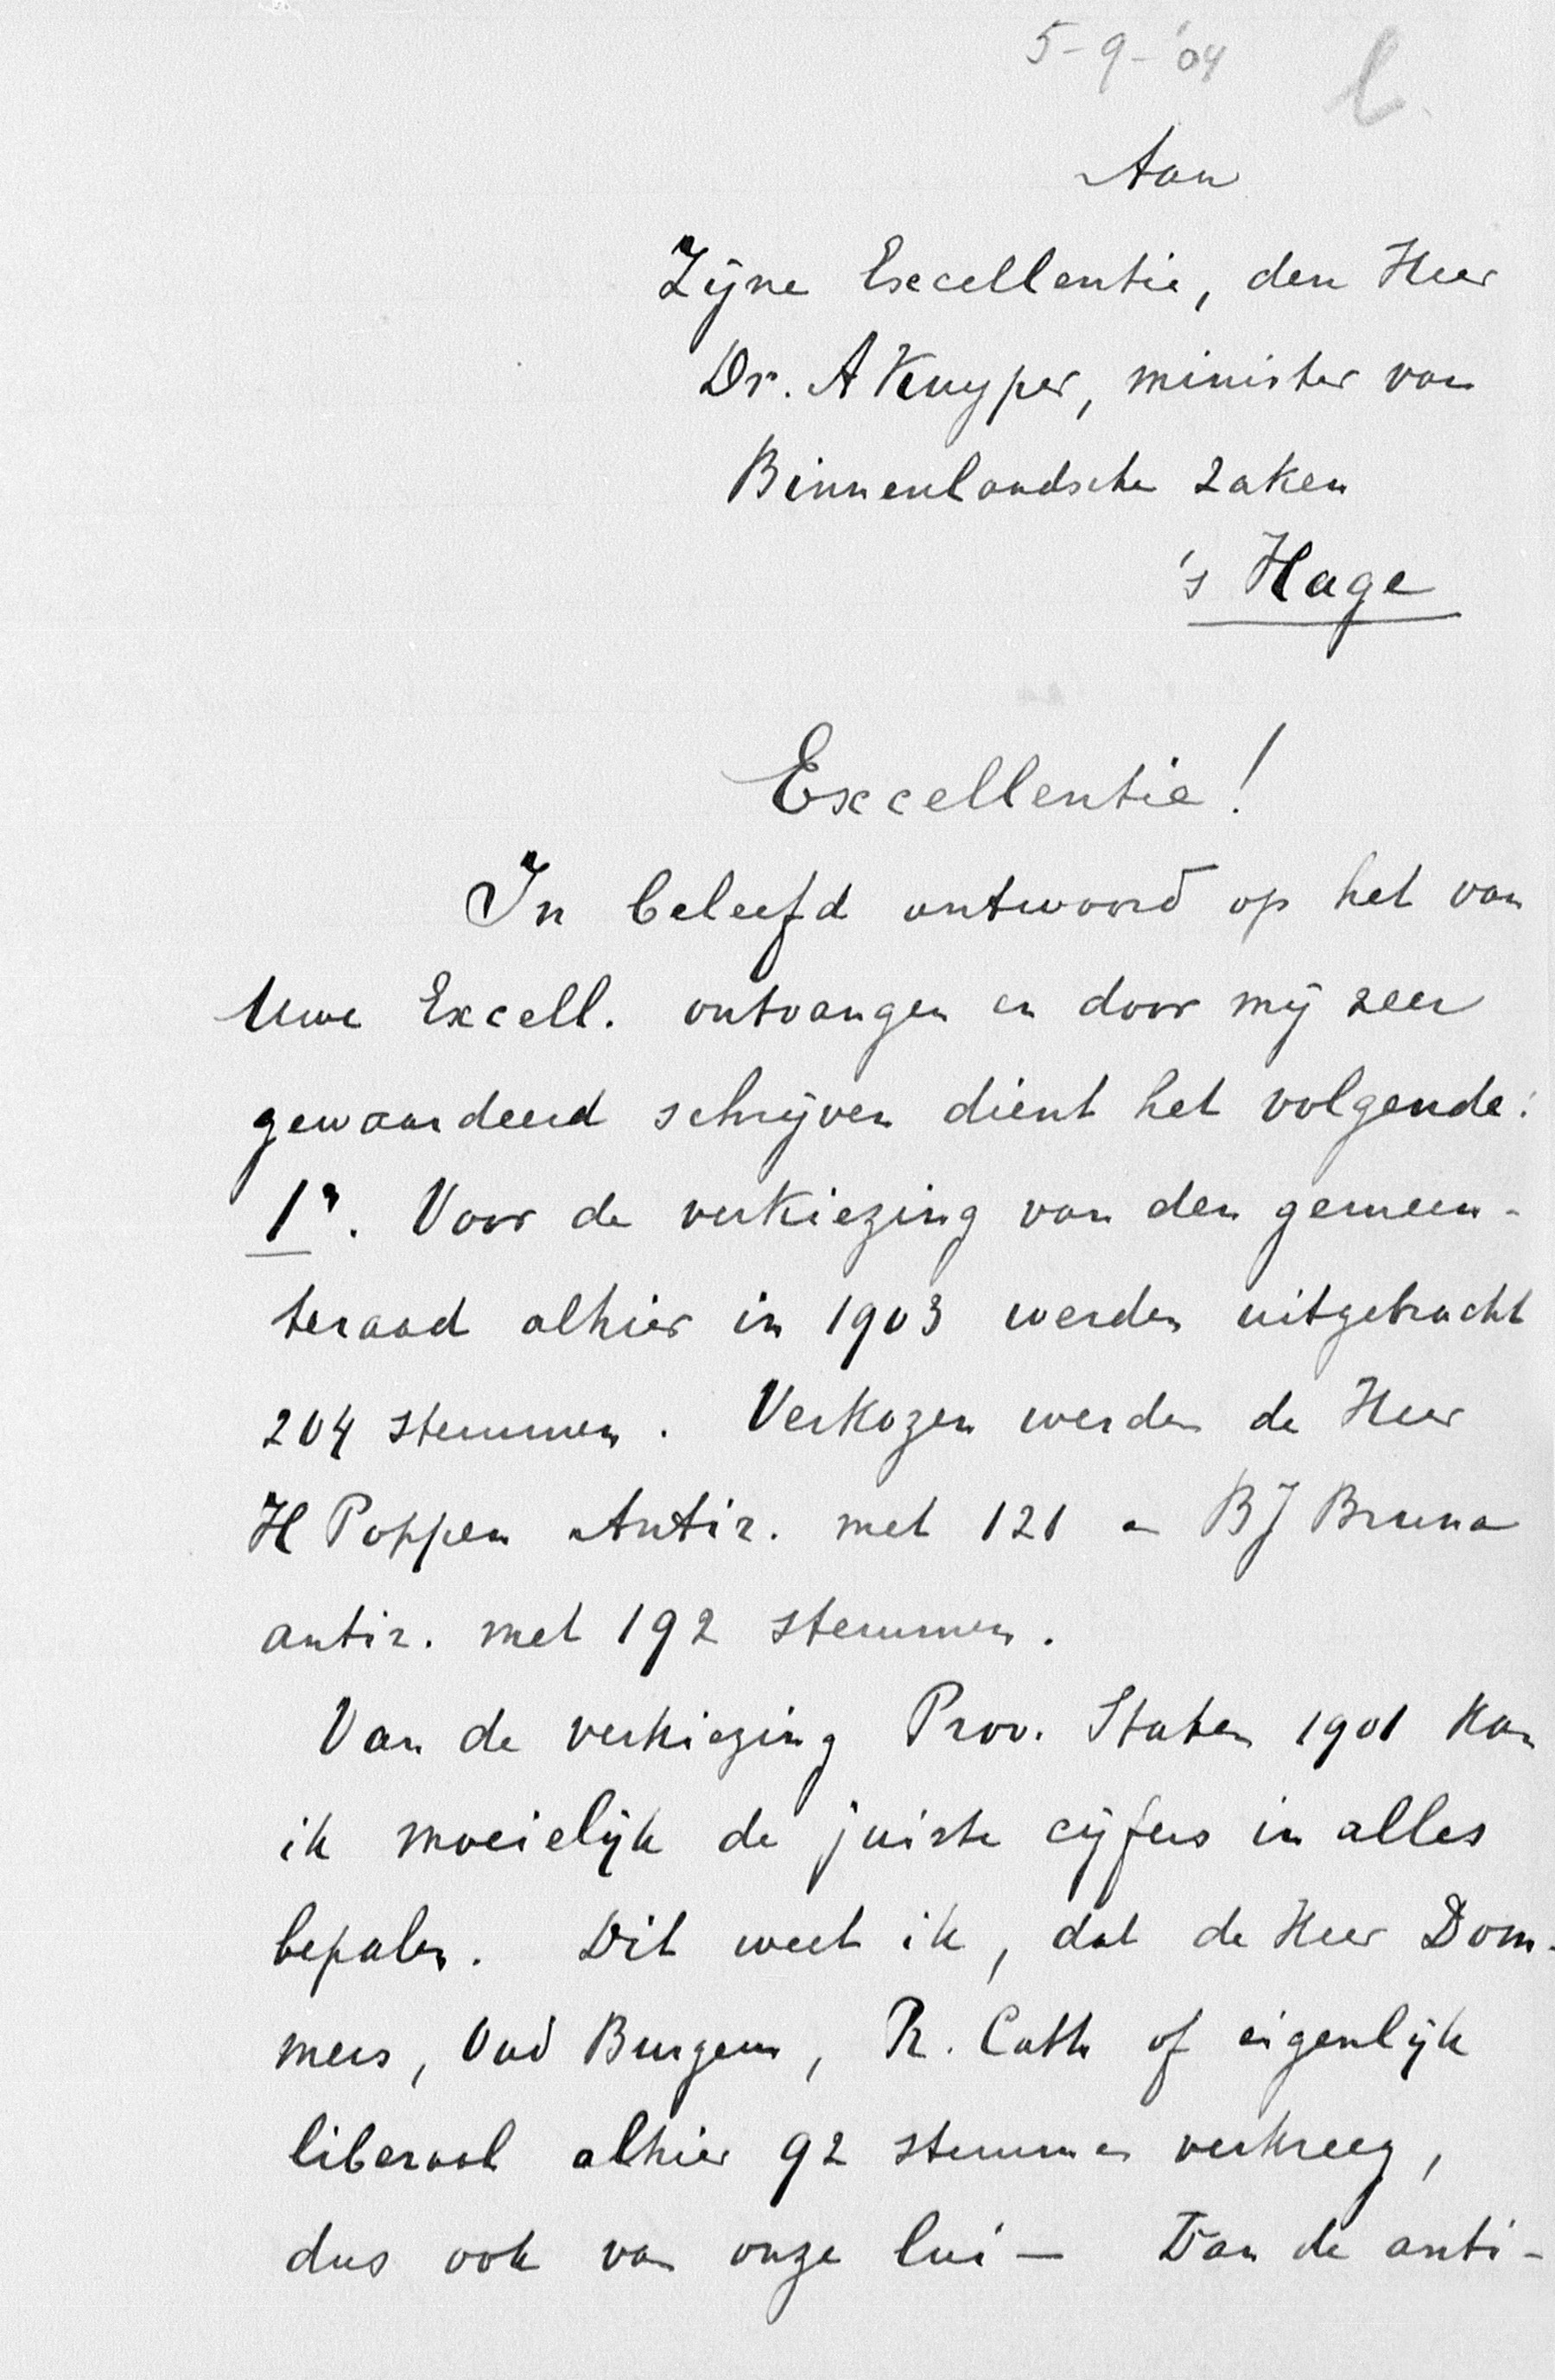 5-9-'04
Aan
Zijne Excellentie, den Heer
Dr. A Kuyper, minister van
Binnenlandsche zaken
's Hage
Excellentie!
In beleefd antwoord op het van
Uwe Excell. ontvangen en door mij zeer
gewaardeerd schrijven dient het volgende:
1°. Voor de verkiezing van den gemeen-
teraad alhier in 1903 werden uitgebracht
204 stemmen. Verkozen werden de Heer
H Poppen Antir. met 121 en BJ Bruna
antir. met 192 stemmen.
Van de verkiezing Prov. Staten 1901 kan
ik moeielijk de juiste cijfers in alles
bepalen. Dit weet ik, dat de Heer Dom-
mers, Oud Burgem, R. Cath of eigenlijk
liberaal alhier 92 stemmen verkreeg,
dus ook van onze lui — Dan de anti-